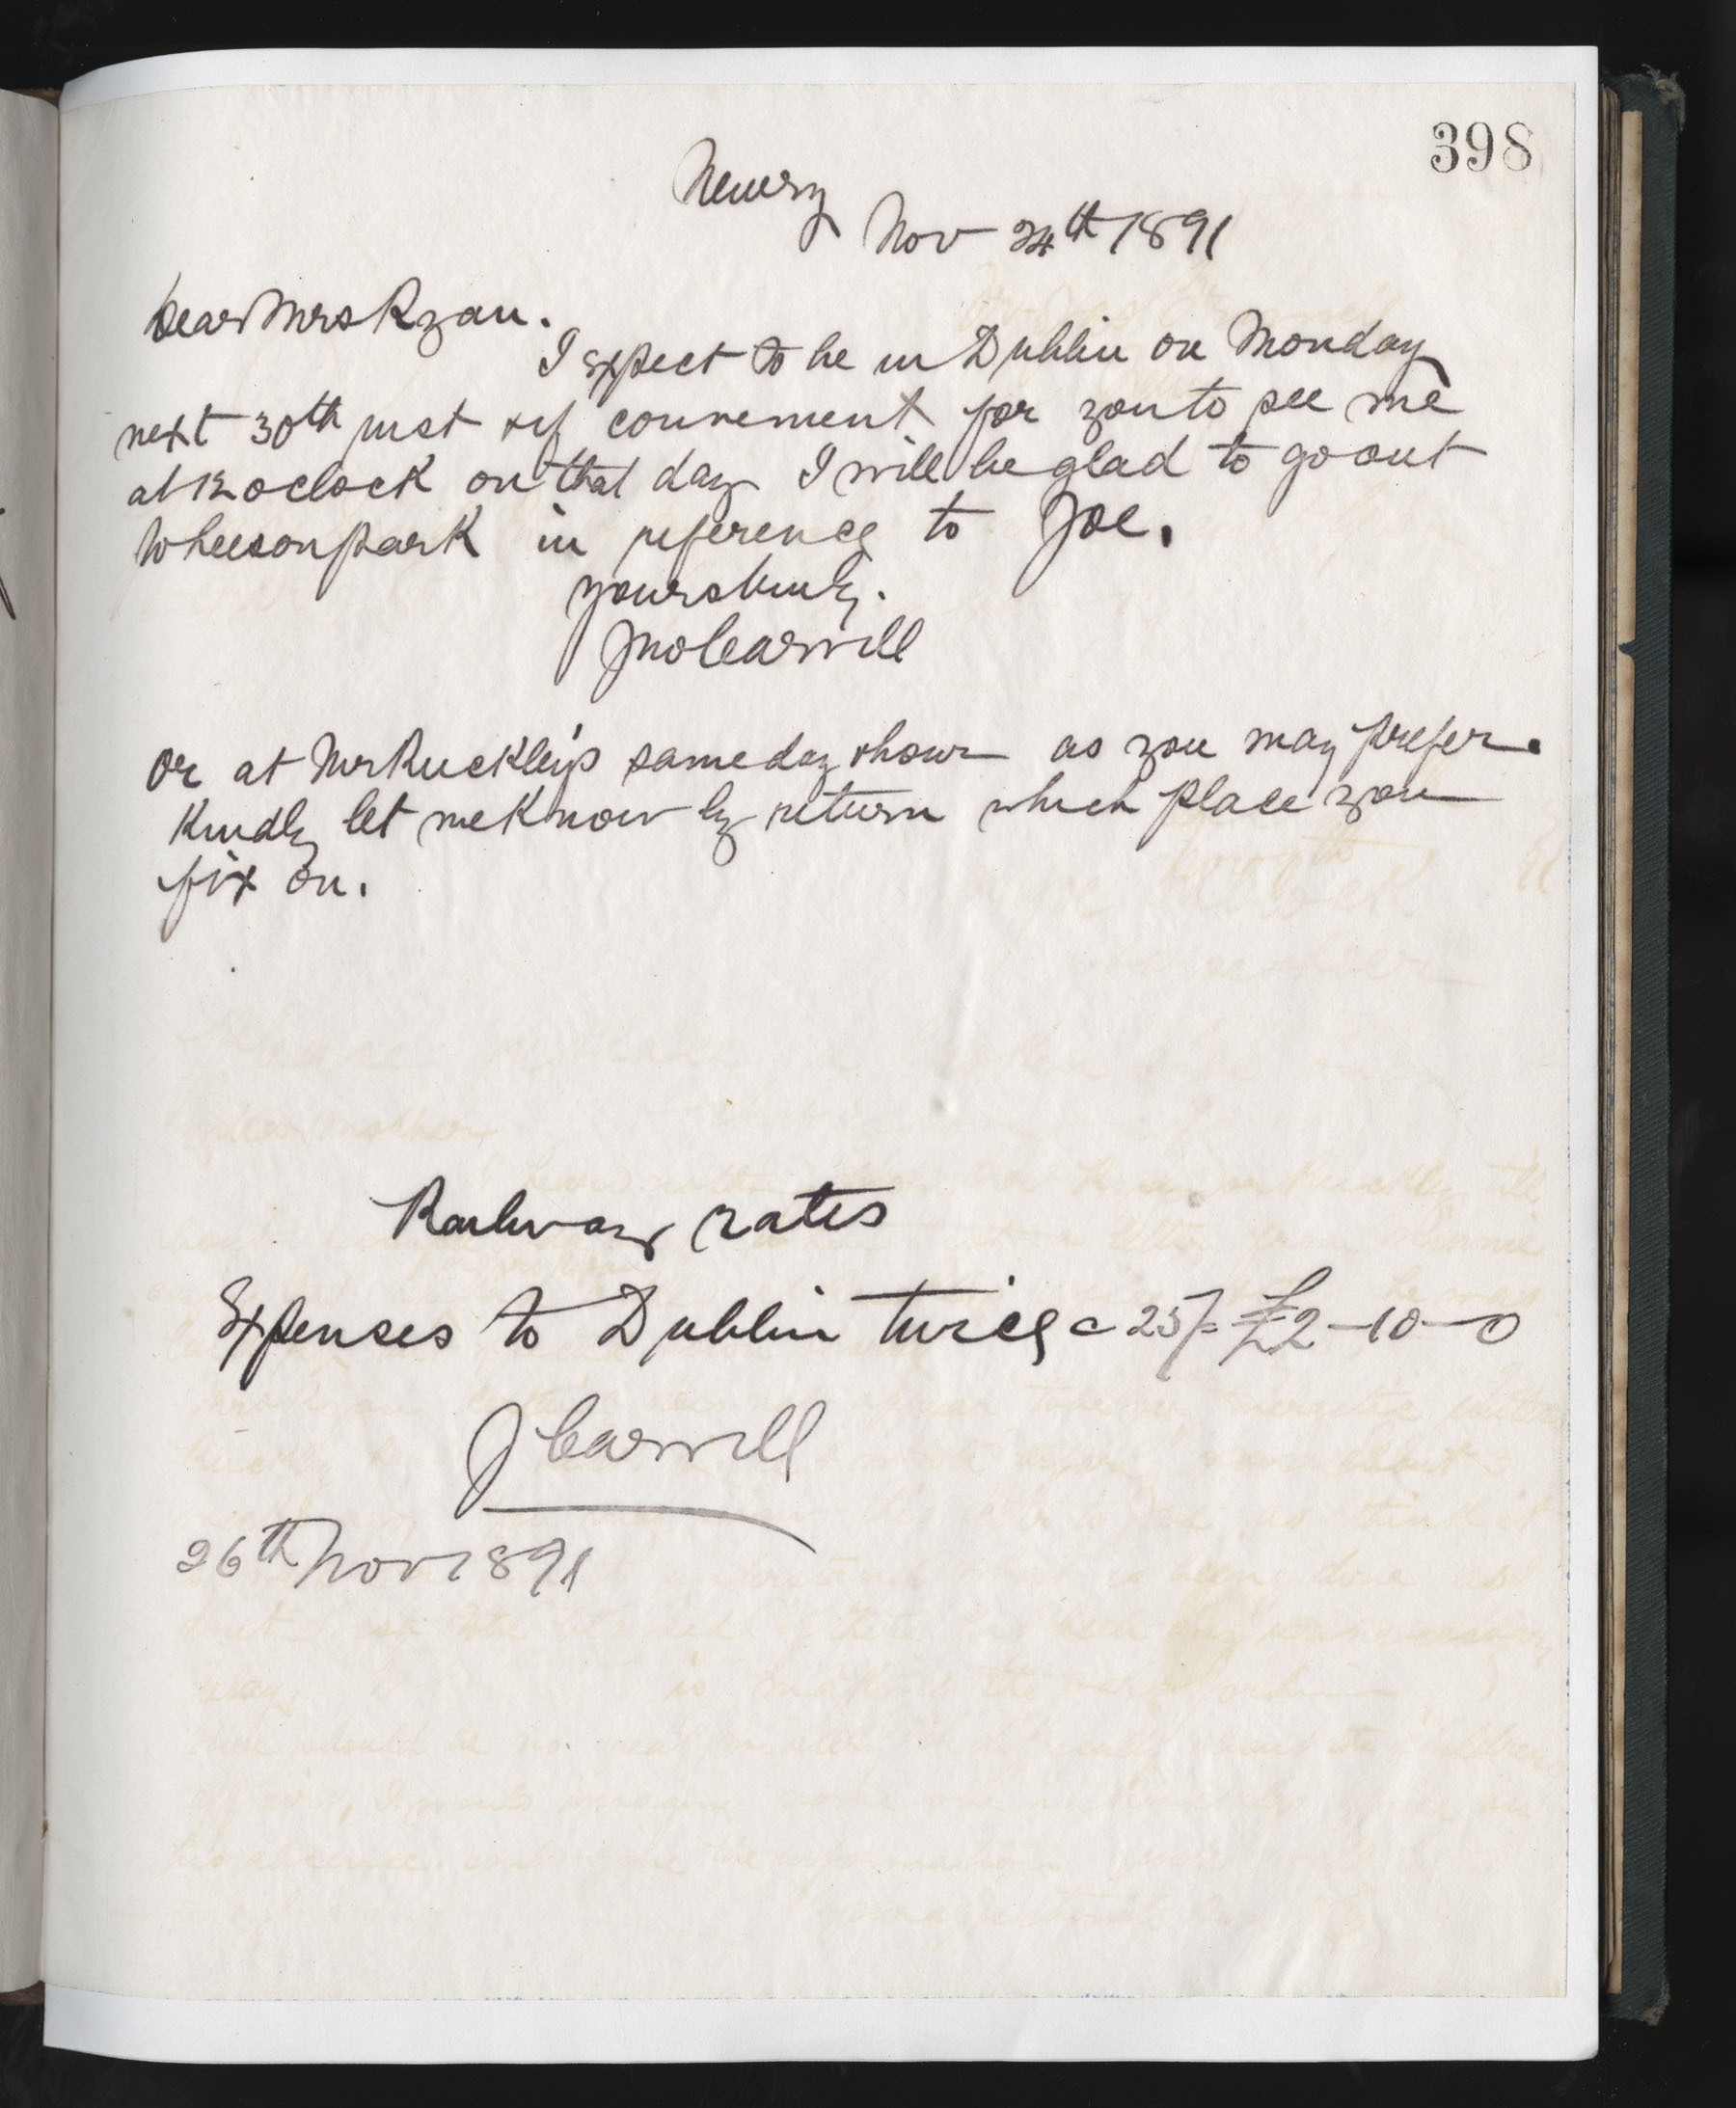 398
Newry
Nov 24th 1891
Dear Mrs Ryan.
I expect to be in Dublin on Monday
next 30th inst & if convenient for you to see me
at 12 oclock on that day I will be glad to go out
to Leeson park in reference to Joe.
yours truly.
Jno Carvill
Or at Mr Buckley's same day & hour as you may prefer.
Kindly let me know by return which place you
fix on.
Railway rates
Expenses to Dublin twice @ 25/- £2-10-0
J Carvill
26th Nov 1891